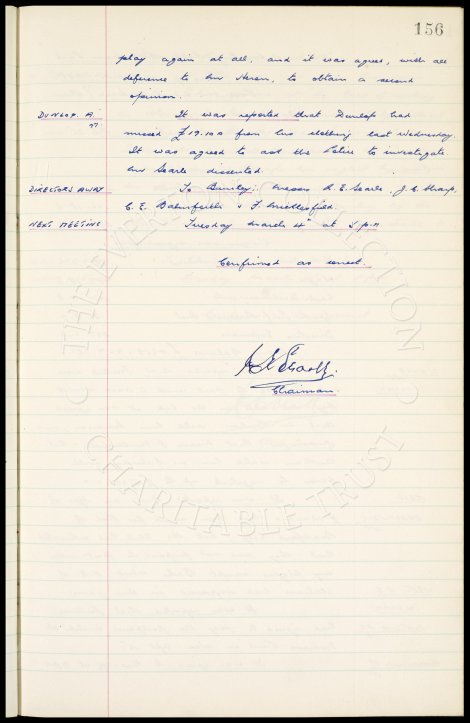 156
play again at all, and it was agreed, with all
deference to Mr Heron, to obtain a second
opinion.
DUNLOP. A. It was reported that Dunlop had
missed £19.10.0 from his clothing last Wednesday.
It was agreed to ask the Police to investigate
Mr Searle dissented.
DIRECTORS AWAY To Burnley: Messrs R. E. Searle, J. C. Sharp,
C. E. Balmforth & F. Micklesfield.
NEXT MEETING Tuesday March 4th at 5 p.m
Confirmed as correct.
Chairman.
THE EVERTON COLLECTION
CHARITABLE TRUST